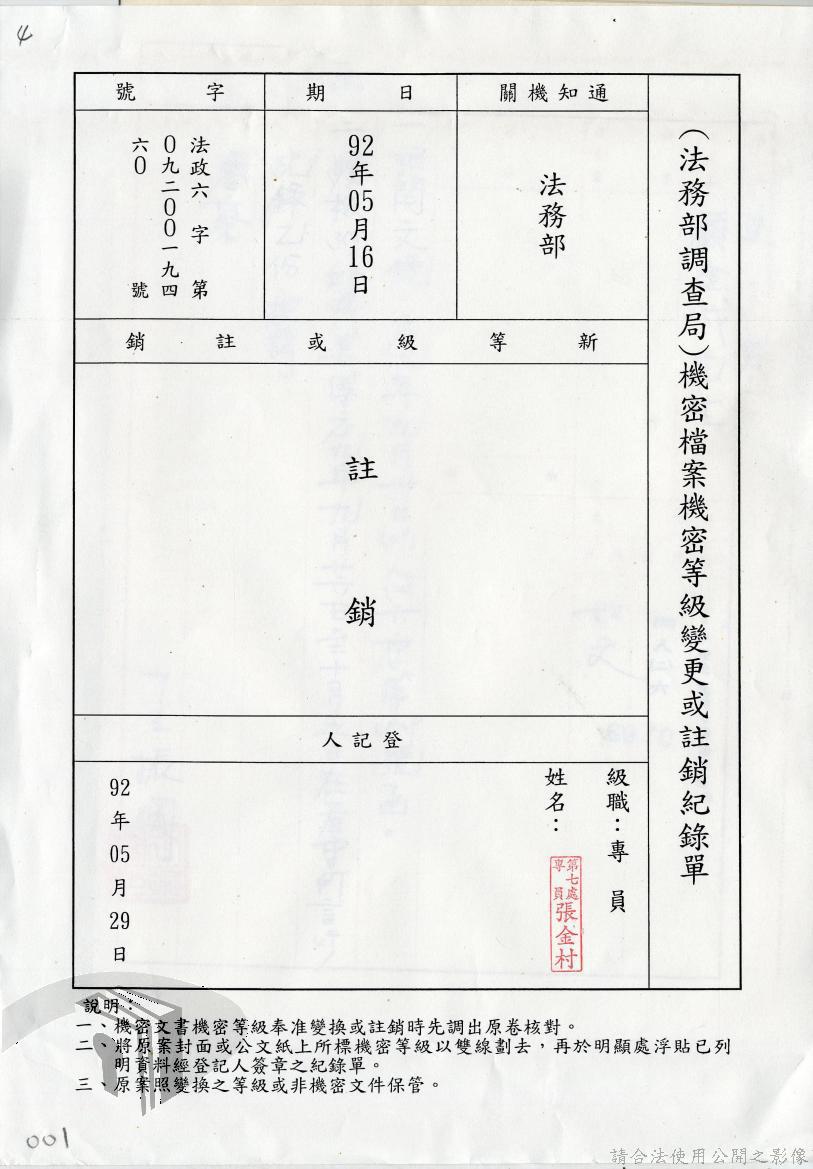 4
（法務部調查局）機密檔案機密等級變更或註銷紀錄單
通知機關
法務部
日期
92年05月16日
字號
法政六字第
０九二００一九四
六０號
新等級或註銷
註銷
登記人
級職：專員
姓名：
第七處
專員
張金村
92年05月29日
說明：
一、機密文書機密等級奉准變換或註銷時先調出原卷核對。
二、將原案封面或公文紙上所標機密等級以雙線劃去，再於明顯處浮貼已列
明資料經登記人簽章之紀錄單。
三、原案照變換之等級或非機密文件保管。
001
請合法使用公開之影像